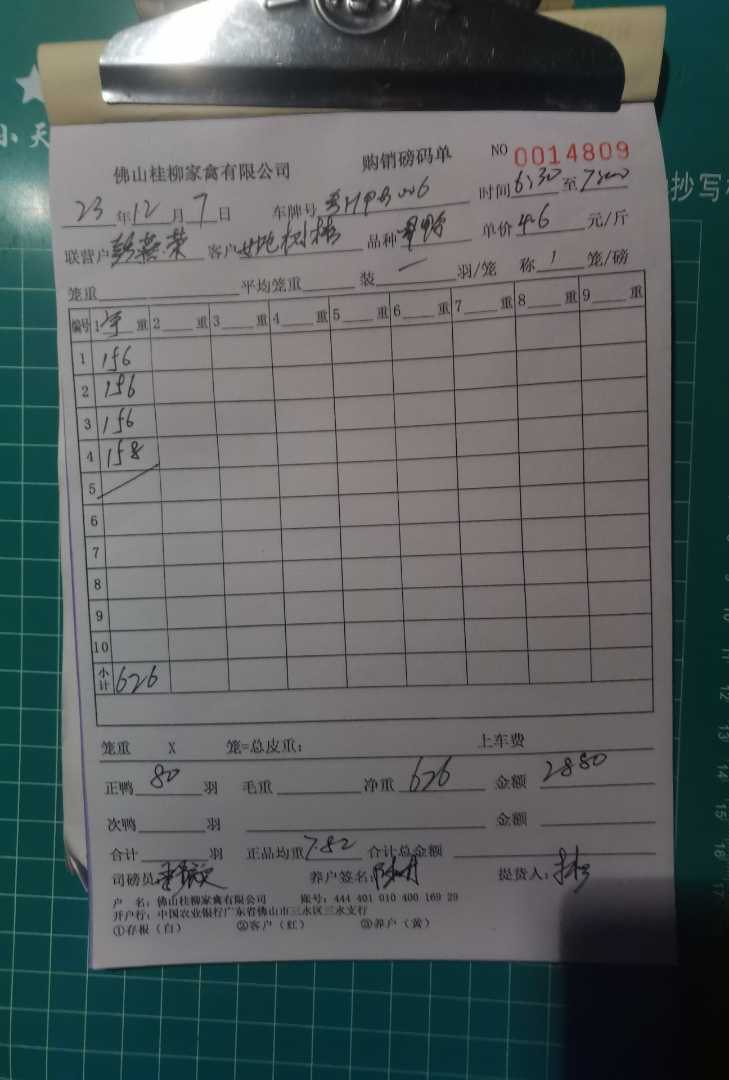 小天
抄写
佛山桂柳家禽有限公司 购销磅码单 NO 0014809
23年12月7日 车牌号 006 时间6:30至7:00
联营户 荣 客户 品种 单价4.6元/斤
笼重 平均笼重 装 一 羽/笼 称 1 笼/磅
编号 1 重 2 重 3 重 4 重 5 重 6 重 7 重 8 重 9 重
1 156
2 156
3 156
4 158
5
6
7
8
9
10
小计 626
笼重 X 笼=总皮重: 上车费
正鸭 80 羽 毛重 净重 626 金额 2880
次鸭 羽 金额
合计 羽 正品均重 7.82 合计总金额
司磅员: 养户签名: 提货人:
户 名: 佛山桂柳家禽有限公司 账号: 444 401 010 400 169 29
开户行: 中国农业银行广东省佛山市三水区三水支行
①存根(白) ②客户(红) ③养户(黄)
9
10
11
12
13
14
15
16
17